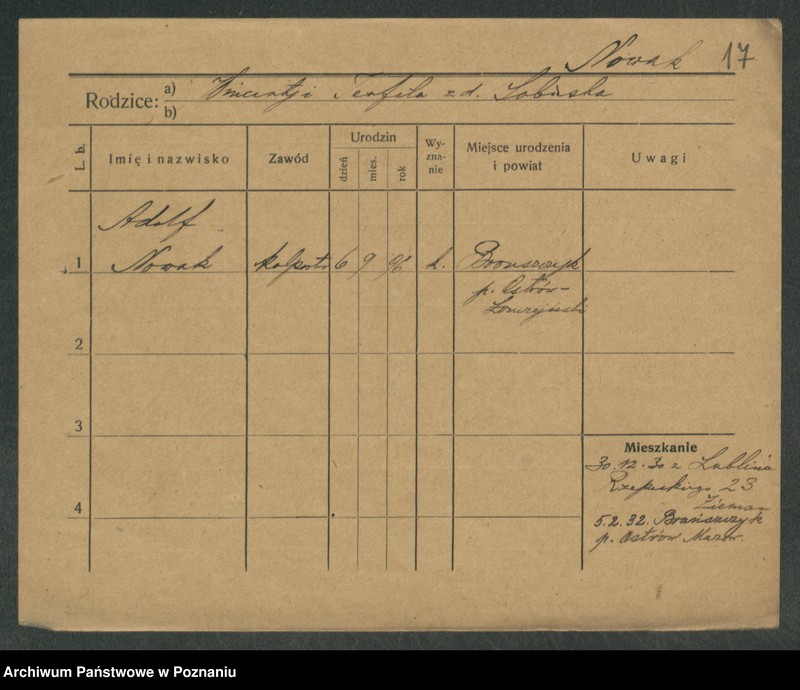 Nowak 17
Rodzice: a) Wincenty i Teofila z d. Sobieska
b)
L. b. Imię i nazwisko Zawód Urodzin dzień mies. rok Wy-zna-nie Miejsce urodzenia i powiat Uwagi
Adolf
1 Nowak kolport. 6 9 96 k. Brańszczyk
p. Ostrów-
Łomżyński
2
3
Mieszkanie
30.12.30 z Lublina
23
4
5.2.32. Brańszczyk
p. Ostrów Mazow.
Archiwum Państwowe w Poznaniu